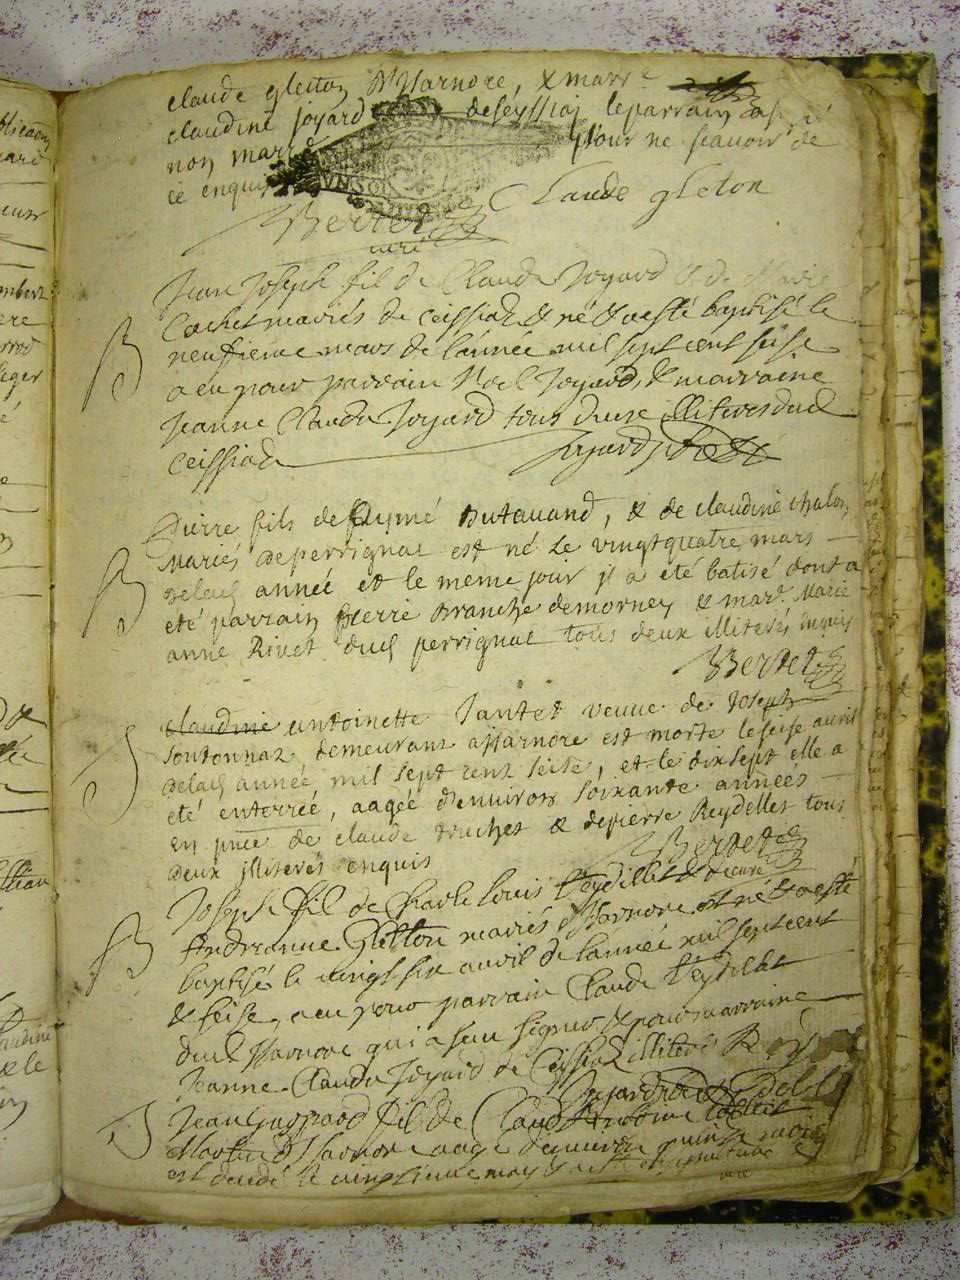 claude gletton d'Isarnore, & marr<sup>e</sup>
claudine joyard de séyssiaz le parrain a signé
non marr UN SOL pour ne scavoir de
ce enquis
Bertet Claude gleton
curé
Jean Joseph fil de Claude Joyard & de Marie
Cochet mariés de ceissiad & né & a esté baptisé le
neuffieme mars de l'année mil sept cent seise
a eu pour parrain Noel Joyard, & marraine
Jeanne Clauda Joyard tous deux illiteres dud
ceissiad Joyard
B
Pierre fils de Aymé Dutauand, & de claudine chalon
Mariés de perrignat est né Le vingtquatre mars
delad année et le meme jour jl a eté batisé dont a
eté parrain pierre branche demornex & mar<sup>e</sup> Marie
anne Rivet dud perrignat tous deux illiterés enquis
B
Bertet
claudine antoinette Jantet veuue de Joseph
Sontonnaz demeurant a Isarnore est morte le seise auril
delad année mil sept cent seise, et le dixsept elle a
eté enterrée, aagée d'enuiron soixante années
en pnce de claude truchet & de pierre Reydellet tous
deux jlliterés enquis Bertet
curé
Joseph fil de Charle Louis Reydillet & de
Andreanne Gletton mariés d'Isarnore est né & a esté
B
baptisé le vingt six auril de l'année mil sept cent
& seise, a eu pour parrain Claude Reydellet
dud Isarnore qui a seu signer & pour marraine
Jeanne Clauda Joyard de Ceissiad illiteré
Jean Gaspard fil de Claude
Martin d'Isarnore aagé d'enuiron quinse mois
est decedé le vingtieme may